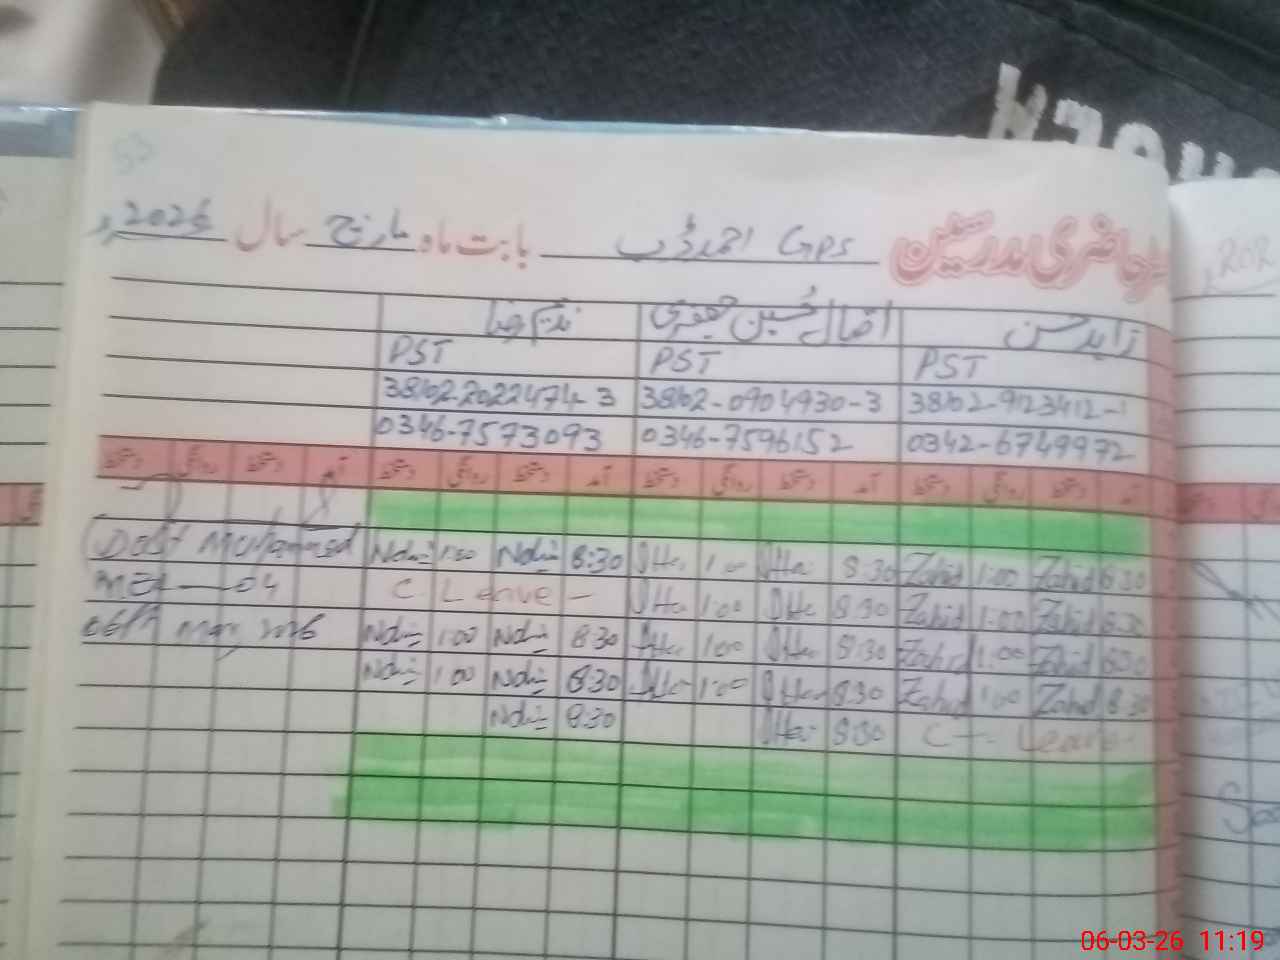 53
حاضری مدرسین GPS احمد ڈب بابت ماہ مارچ سال 2026ء
زاہد حسن افضال حسین جعفری ندیم رضا
PST PST PST
38102-2022474-3 38102-0904930-3 38102-9123412-1
0346-7573093 0346-7596152 0342-6749972
آمد دستخط روانگی دستخط آمد دستخط روانگی دستخط آمد دستخط روانگی دستخط آمد دستخط روانگی دستخط
Dost Mohammad 1:00 8:30 1:00 8:30 Zahid 1:00 Zahid 8:30
MEA-04 C. Leave - 1:00 8:30 Zahid 1:00 Zahid 8:30
06th 2026 1:00 8:30 1:00 8:30 Zahid 1:00 Zahid 8:30
1:00 8:30 1:00 8:30 Zahid 1:00 Zahid 8:30
8:30 8:30 C- Leave-
06-03-26 11:19